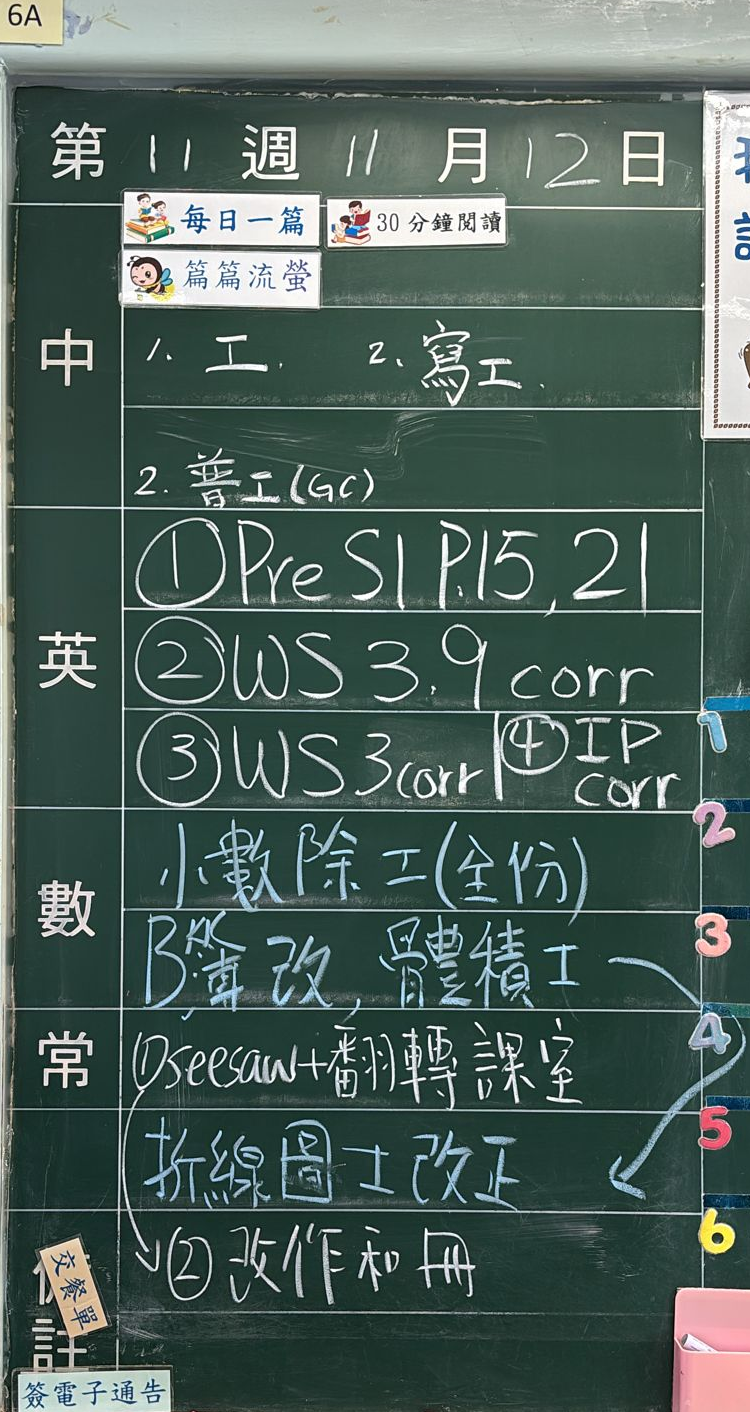 6A
第 11 週 11 月 12 日
每日一篇 30分鐘閱讀
篇篇流螢
中 1. 工. 2. 寫工.
2. 普工(GC)
① Pre S1 P.15, 21
英 ② WS 3.9 corr
③ WS 3 corr | ④ IP corr
小數除工(全份)
數 B簿改, 體積工
常 ① seesaw+翻轉課室
折線圖工改正
② 改作和冊
備註
交餐單
簽電子通告
1
2
3
4
5
6